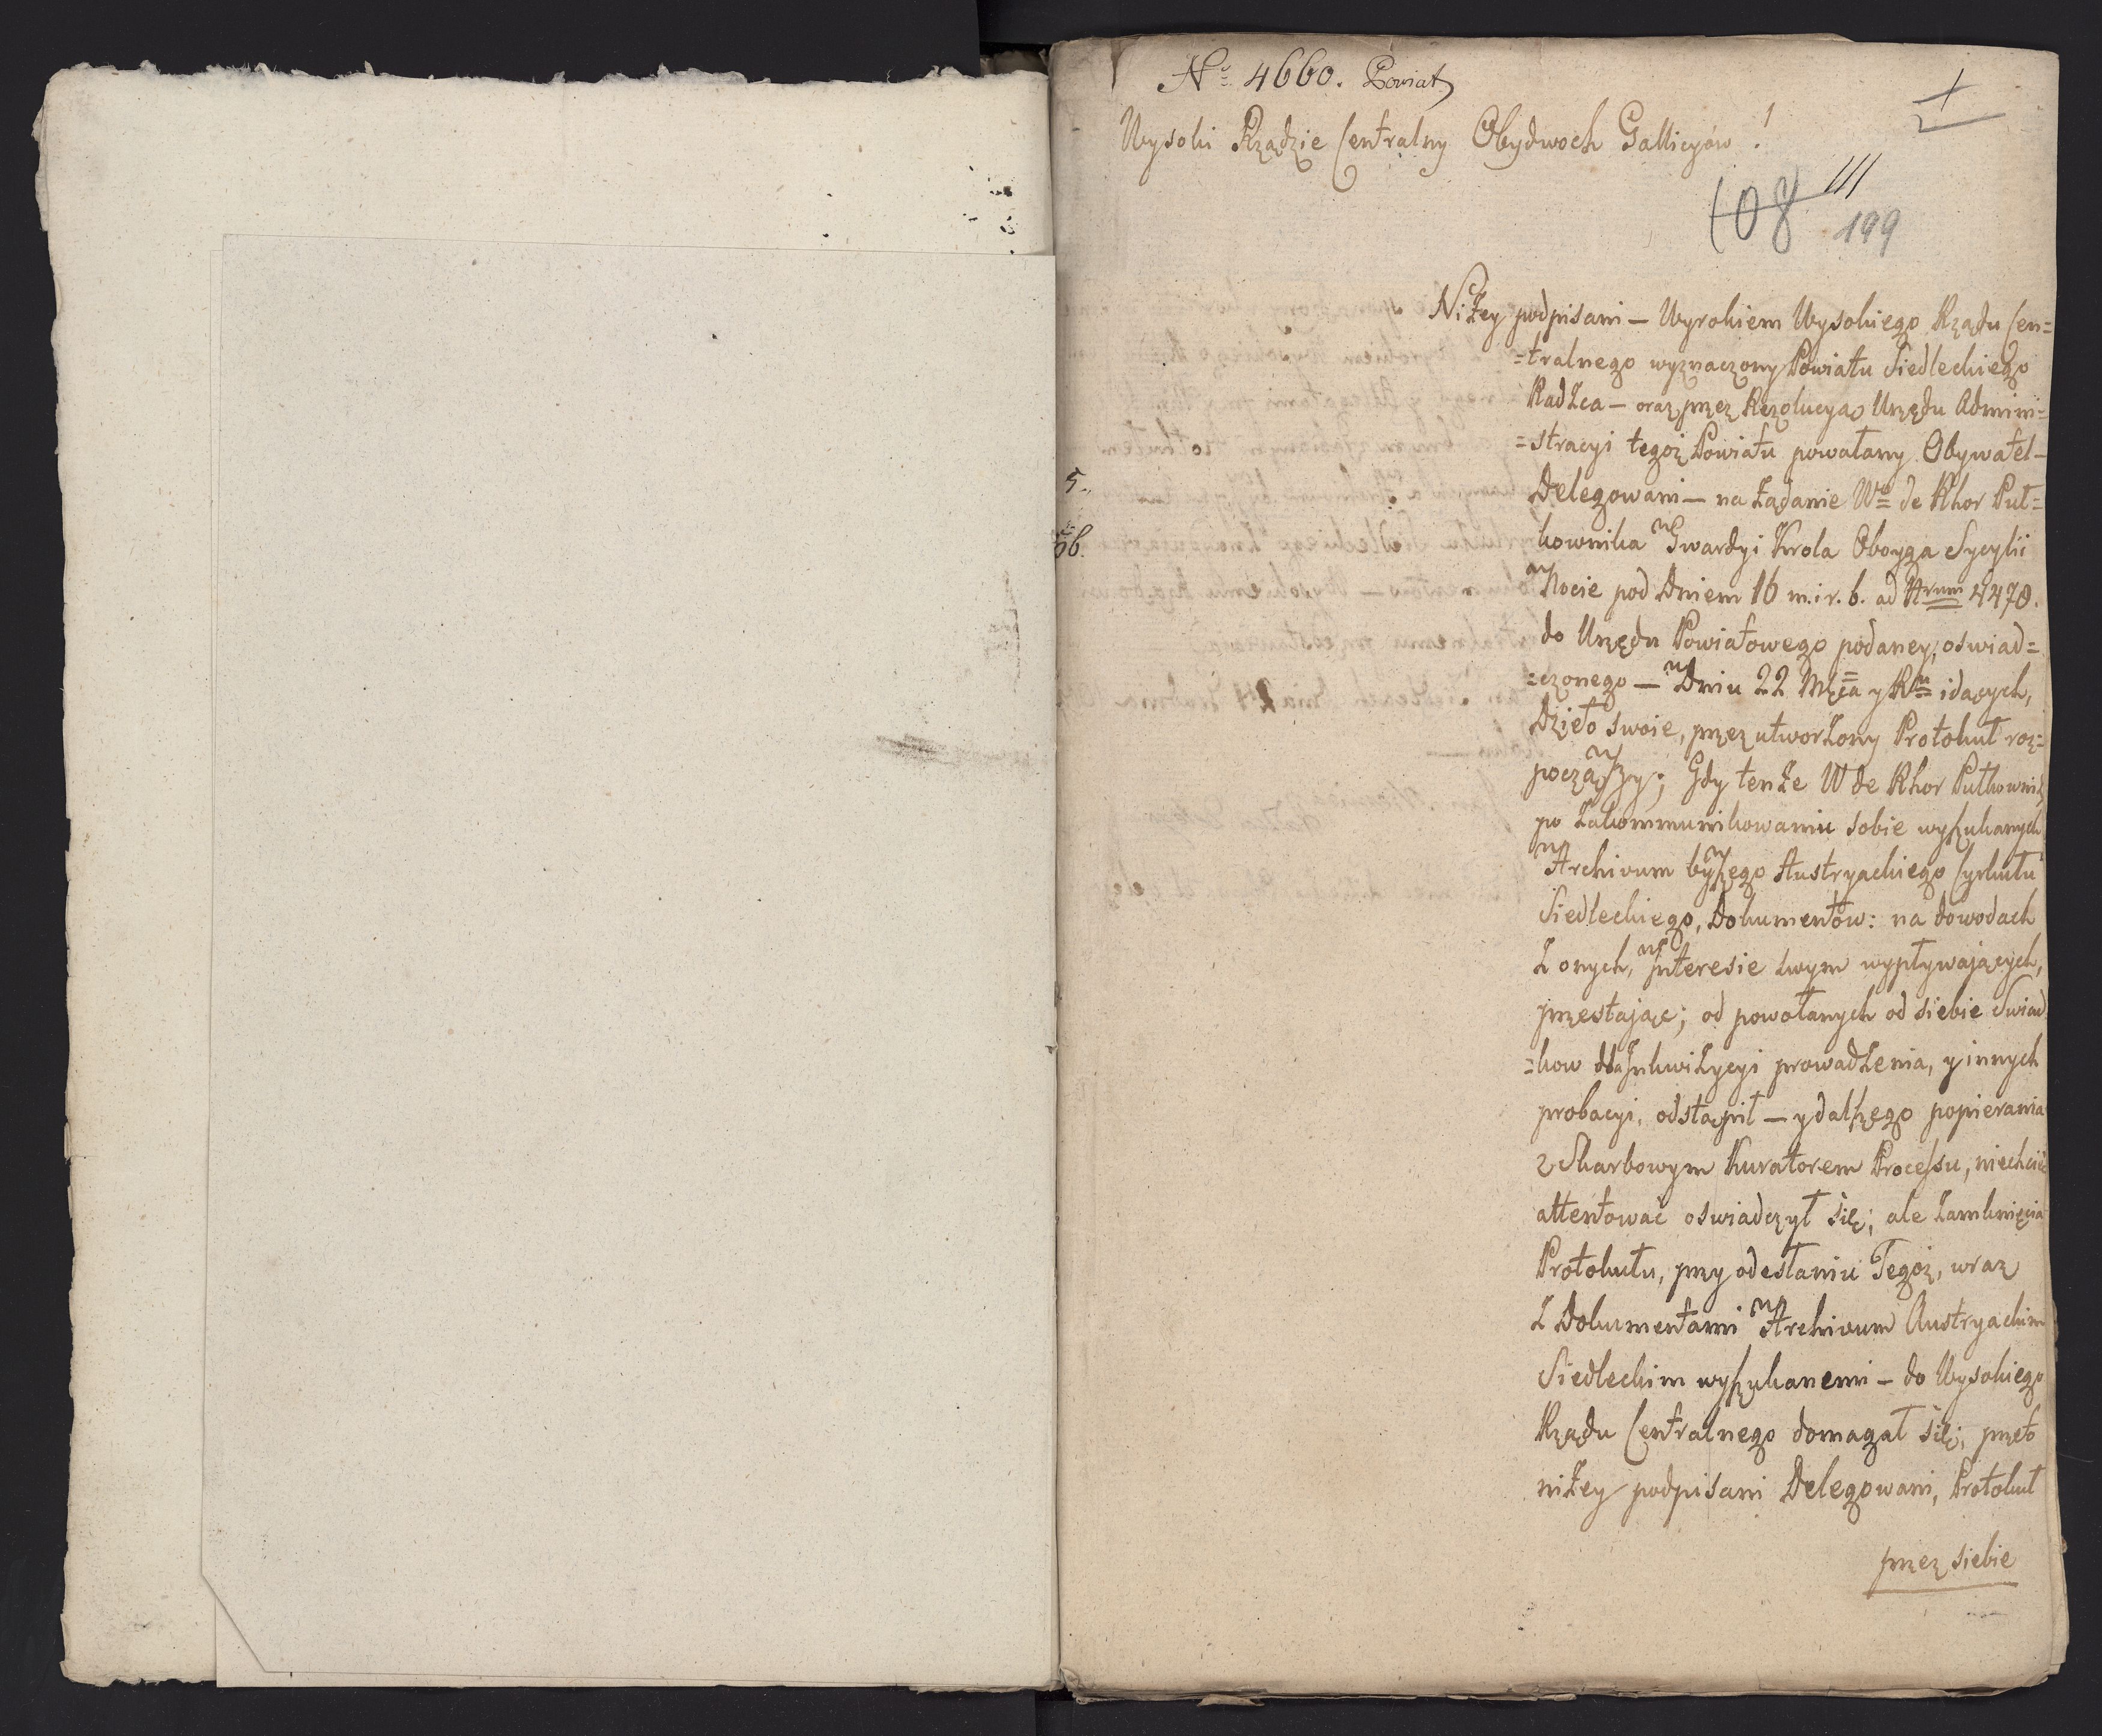 No 4660. Powiat
1
Wysoki Rządzie Centralny Obydwoch Gallicyów!
108 111
199
Niżey podpisani – Wyrokiem Wysokiego Rządu Cen=
=tralnego wyznaczony Powiatu Siedleckiego
Radzca – oraz przez Rezolucyą Urzędu Admini=
=stracyi tegoż Powiatu powołany Obywatel –
Delegowani – na żądanie Wo de Khor Puł=
kownika w Gwardyi Krola Oboyga Sycylii
w Nocie pod Dniem 16 m. i r. b. ad Nrum 4470.
do Urzędu Powiatowego podaney, oswiad=
=czonego – w Dniu 22 Mca y Rku idących,
Dzieło swoie, przez utworzony Protokuł roz=
począwszy; Gdy tenże W de Khor Pułkownik
po zakommunikowaniu sobie wyszukanych
w Archivum bywszego Austryackiego Cyrkułu
Siedleckiego, Dokumentów: na dowodach
z onych, w Interesie swym wypływających,
przestając; od powołanych od siebie Swiad
=kow dla Inkwizycyi prowadzenia, y innych
probacyi, odstąpił – y dalszego popierania
z Skarbowym Kuratorem Processu, niechcieć
attentować oswiadczył się; ale zamknięcia
Protokułu, przy odesłaniu Tegoż, wraz
z Dokumentami w Archivum Austryackim
Siedleckim wyszukanemi – do Wysokiego
Rządu Centralnego domagał się; przeto
niżey podpisani Delegowani, Protokuł
przez siebie
5.
6.